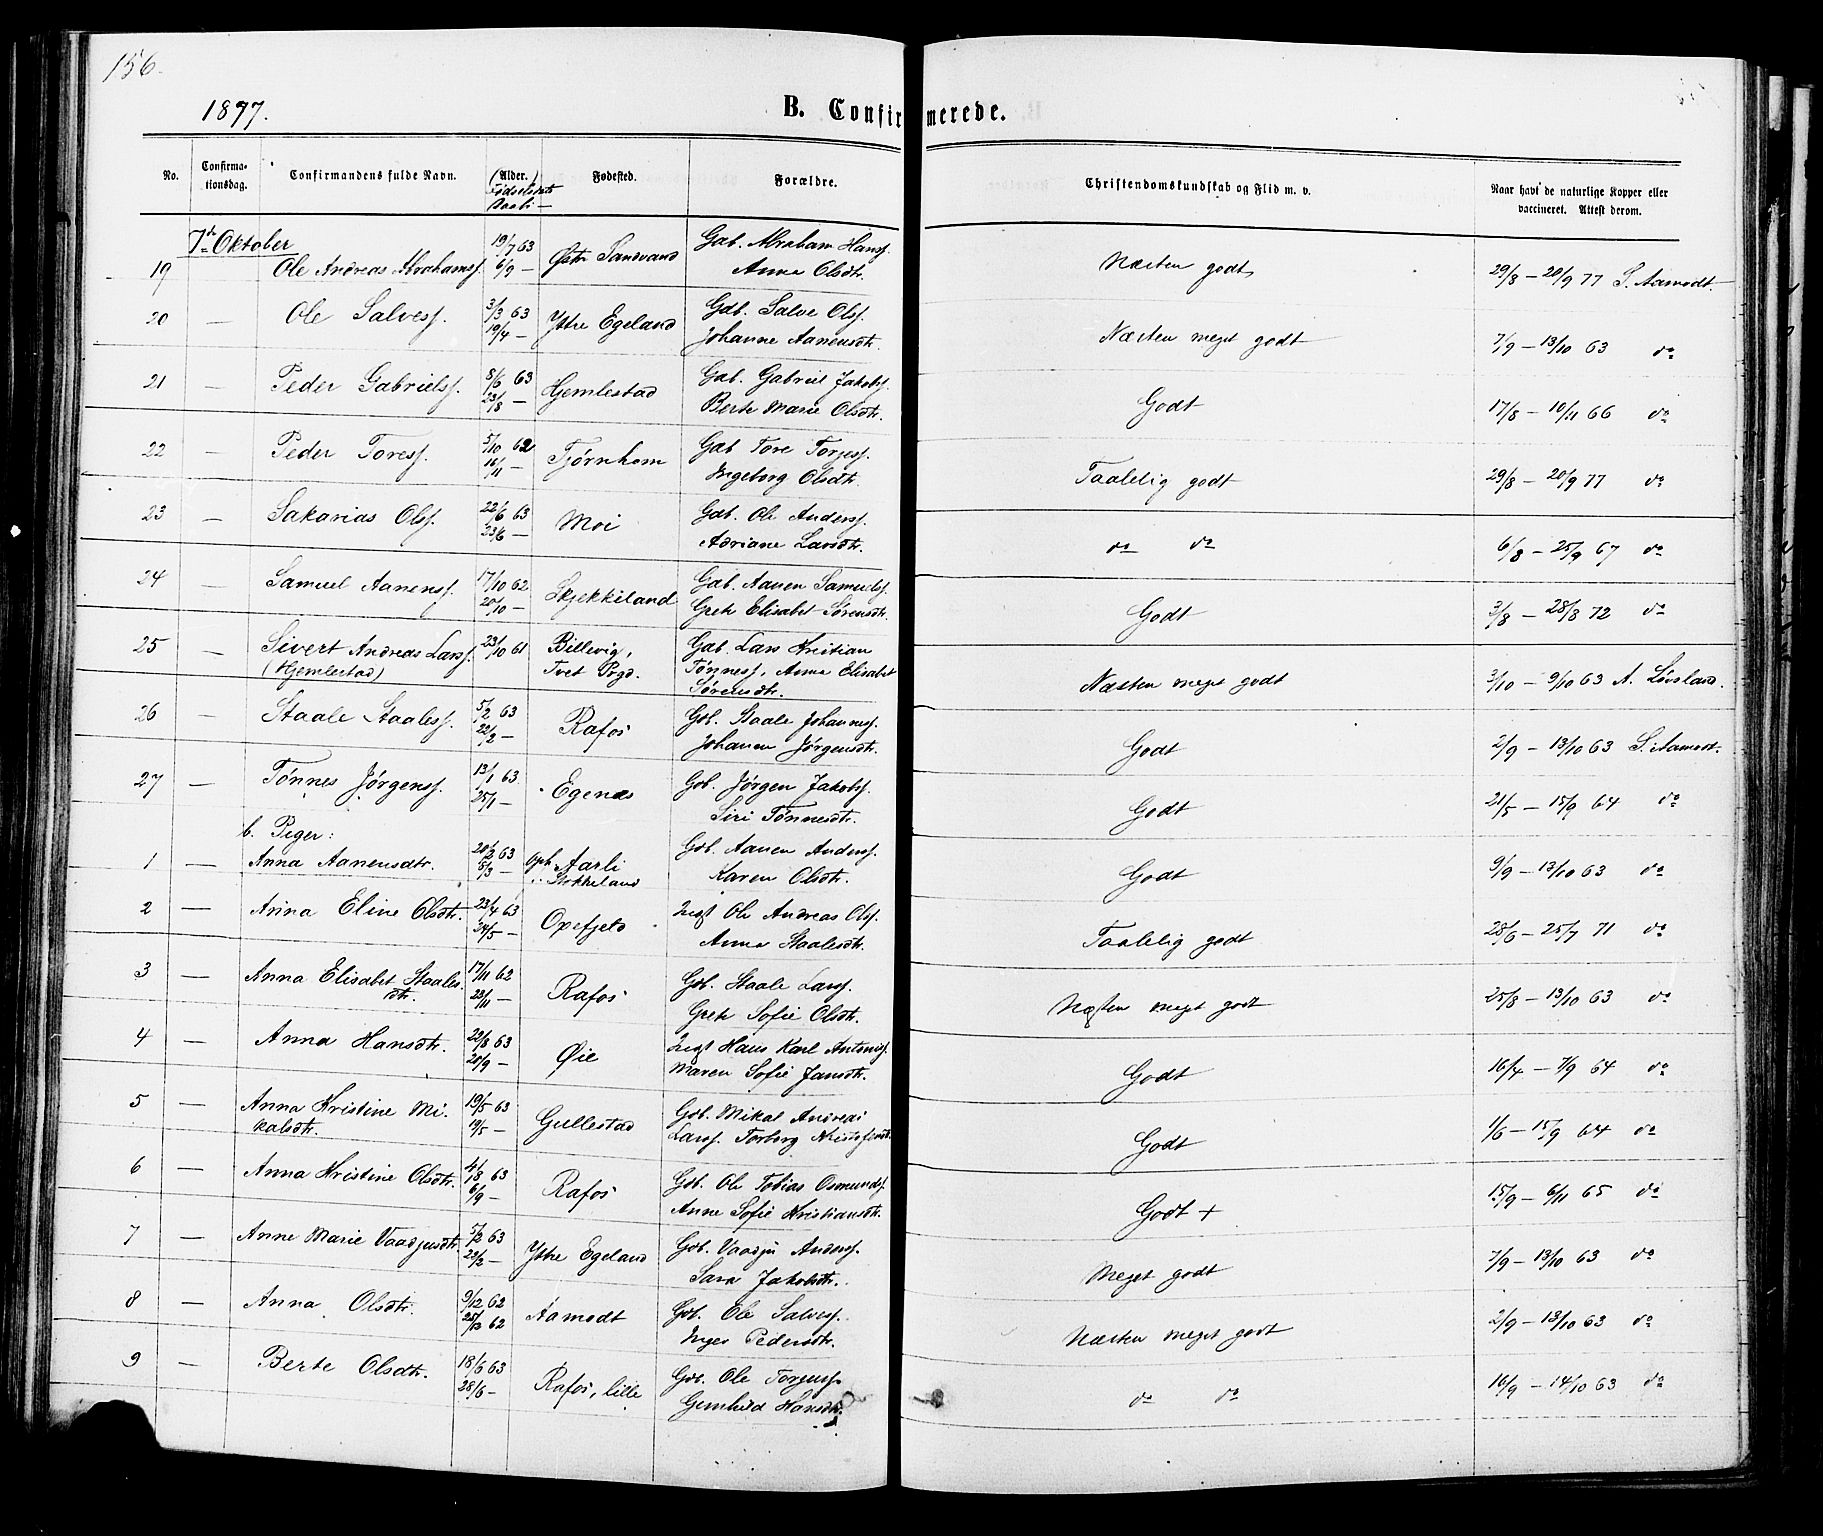 156.
1877.
B. Confirmerede.
No. Confirmationsdag. Confirmandens fulde Navn. (Alder.) Fødselsdato Daab: — Fødested. Forældre. Christendomskundskab og Flid m. v. Naar havt de naturlige Kopper eller vaccineret. Attest derom.
7de Oktober
19 Ole Andreas Abrahamss. 19/7 63 6/9 — Østre Sandvand Gab. Abraham Hanss. Anna Olsdtr. Næsten godt 29/8 — 20/9 77 S. Aamodt.
20 — Ole Salvess. 3/3 63 19/4 — Ystre Egeland Gdb. Salve Olss. Johanne Aanensdtr. Næsten meget godt 7/9 — 13/10 63 do
21 — Peder Gabrielss. 8/6 63 23/8 — Hjemlestad Gab. Gabriel Jakobss. Berte Marie Olsdtr. Godt 17/8 — 10/11 66 do
22 — Peder Toress. 5/10 62 16/11 — Tjørnhom Gab Tore Torjess. Ingeborg Olsdtr. Taalelig godt 29/8 — 20/9 77 do
23 — Sakarias Olss. 22/6 63 23/6 — Moi Gab. Ole Anderss. Adriane Larsdtr. do do 6/8 — 25/9 67 do
24 — Samuel Aanenss. 17/10 62 20/10 — Skjekkeland Gab. Aanen Samuelss. Grete Elisabet Sørensdtr. Godt 3/8 — 28/8 72 do
25 — Sivert Andreas Larss. (Hjemlestad) 23/10 61 Billevig, Tvet Prgd. Gab. Lars Kristian Tønness, Anna Elisabet Sørensdtr. Næsten meget godt 3/10 — 9/10 63 A. Løvland.
26 — Staale Staaless. 5/2 63 22/2 — Rafos Gdb. Staale Johanness. Johanne Jørgensdtr. Godt 2/9 — 13/10 63 S. Aamodt.
27 — Tønnes Jørgenss. 13/1 63 25/1 — Egenæs Gdb. Jørgen Jakobss. Siri Tønnesdtr. Godt 21/5 — 15/9 64 do
b. Piger:
1 — Anna Aanensdtr. 20/2 63 8/3 — Oph. Aarli i Stokkeland Gdb. Aanen Anderss. Karen Olsdtr. Godt 9/9 — 13/10 63 do
2 — Anna Eline Olsdtr. 23/4 63 24/5 — Oxefjeld Ole Andreas Olss. Anna Staalesdtr. Taalelig godt 28/6 — 25/7 71 do
3 — Anna Elisabet Staalesdtr. 17/11 62 23/11 — Rafos Gdb. Staale Larss. Grete Sofie Olsdtr. Næsten meget godt 25/8 — 13/10 63 do
4 — Anna Hansdtr. 22/8 63 20/9 — Øie Hans Karl Antoniss. Maren Sofie Jansdtr. Godt 16/4 — 7/9 64 do
5 — Anna Kristine Mikalsdtr. 19/5 63 19/5 — Gullestad Gdb. Mikal Andreas Larss. Torborg Kristofersdtr. Godt 1/6 — 15/9 64 do
6 — Anna Kristine Olsdtr. 4/8 63 6/9 — Rafos Gdb. Ole Tobias Osmundss. Anne Sofie Kristiansdtr. Godt + 15/9 — 6/11 65 do
7 — Anne Marie Vaadjusdtr. 5/2 63 22/2 — Ystre Egeland Gdb. Vaadju Anderss. Sara Jakobsdtr. Meget godt 7/9 — 13/10 63 do
8 — Anna Olsdtr. 9/12 62 25/12 62 Aamodt Gdb. Ole Salvess. Inger Pedersdtr. Næsten meget godt 2/9 — 13/10 63 do
9 — Berte Olsdtr. 18/6 63 28/6 — Rafos, lille Gdb. Ole Torjuss. Gunhild Hansdtr. do do 16/9 — 14/10 63 do